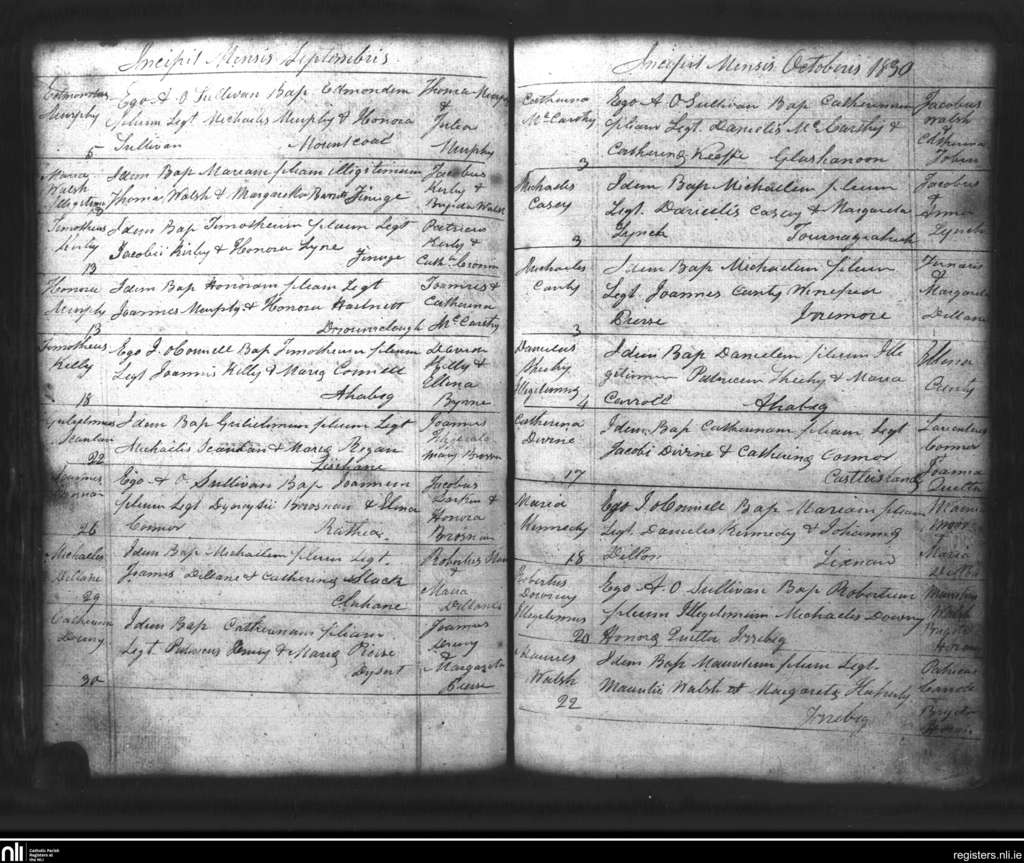 Incipit Mensis Septembris
Edmondus Ego A O Sullivan Bap Edmondum Thoma Murphy
Murphy filium Legt Michaelis Murphy & Honora & Julea
5 Sullivan Mountcoal Murphy
Maria Idem Bap Mariam filiam Illigitimam Jacobus
Walsh Thoma Walsh & Margaretta Finuge Kirby &
13 Brigida Walsh
Timotheus Idem Bap Timotheum filium Legt Patricio
Kirby Jacobii Kirby & Honora Lyne Finuge Kirby &
13 Cath. Cronin
Honora Idem Bap Honoram filiam Legt Joannes &
Murphy Joannes Murphy & Honora Hartnett Catherina
13 Drommclough McCarthy
Timotheus Ego J. O Connell Bap Timotheum filium
Kelly Legt Joannis Kelly & Maria Connell Kelly &
18 Ahabeg Ellena Byrne
Gulielmus Idem Bap Gulielmum filium Legt Joannes
Scanlan Michaelis Scanlan & Maria Regan Fitzgerald
22 Lisehane Mary Brosnan
Joannes Ego A O Sullivan Bap Joannem Jacobus
filium Legt Dyonysii Brosnan & Elena Larkin &
26 Connor Rathea Honora
Brosnan
Michaelis Idem Bap Michaelem filium Legt. Robertus
Dillane Joannis Dillane & Catherina Slack & Maria
29 Clahane Dillane
Catherina Idem Bap Catherinam filiam Joannes
Drury Legt Patricius Drury & Maria Drury
30 Dysert & Margareta
Pierse
Incipit Mensis Octobris 1830
Catherina Ego A O Sullivan Bap Catherinam Jacobus
McCarthy filiam Legt. Danielis McCarthy & Walsh &
3 Catherina Keeffe Glashanoon Catherina
Tobin
Michaelis Idem Bap Michaelem filium Jacobus
Casey Legt. Danielis Casey & Margareta & Anna
3 Lynch Lynch
Michaelis Idem Bap Michaelem filium
Canty Legt Joannes Canty Winefred Margareta
3 Pierse Irremore Dillane
Danielus Idem Bap Danielem filium Ille Ellena
Sheehy gitimum Patricium Sheehy & Maria Canty
4 Carroll Ahabeg
Catherina Idem Bap Catherinam filiam Legt
Divine Jacobi Divine & Catherina Connor Connor
17 Castleisland Joanna
Quitter
Maria Ego J. O Connell Bap Mariam filiam
Kennedy Legt. Danielis Kennedy & Johanna Moore
18 Dillon Lixnaw Maria
Robertus Ego A. O Sullivan Bap Robertum
Downey filium Illegitimum Michaelis Downy Walsh
20 Honora Quitter Irrebeg
Idem Bap Mauritium filium Legt. Patricus
Walsh Mauritii Walsh et Margareta
22 Irrebeg
nli
Catholic Parish
Registers at
the NLI
registers.nli.ie